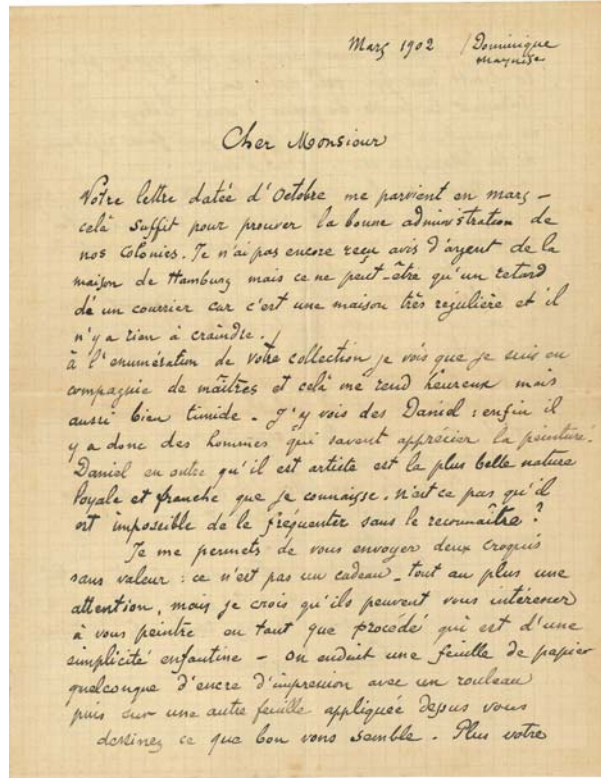 Mars 1902 / Dominique
Cher Monsieur
Votre lettre datée d'Octobre me parvient en mars –
celà suffit pour prouver la bonne administration de
nos colonies. Je n'ai pas encore reçu avis d'argent de la
maison de Hamburg mais ce ne peut-être qu'un retard
de un courrier car c'est une maison très régulière et il
n'y a rien à craindre.
à l'enumération de votre collection je vois que je suis en
compagnie de maîtres et celà me rend heureux mais
aussi bien timide – J'y vois des Daniel : enfin il
y a donc des hommes qui savent apprécier la peinture.
Daniel en outre qu'il est artiste est la plus belle nature
loyale et franche que je connaisse. N'est ce pas qu'il
est impossible de le fréquenter sans le reconnaître ?
Je me permets de vous envoyer deux croquis
sans valeur : ce n'est pas un cadeau – tout au plus une
attention, mais je crois qu'ils peuvent vous intéresser
à vous peintre en tant que procédé qui est d'une
simplicité enfantine – on enduit une feuille de papier
quelconque d'encre d'impression avec un rouleau
puis sur une autre feuille appliquée dessus vous
dessinez ce que bon vous semble. Plus votre